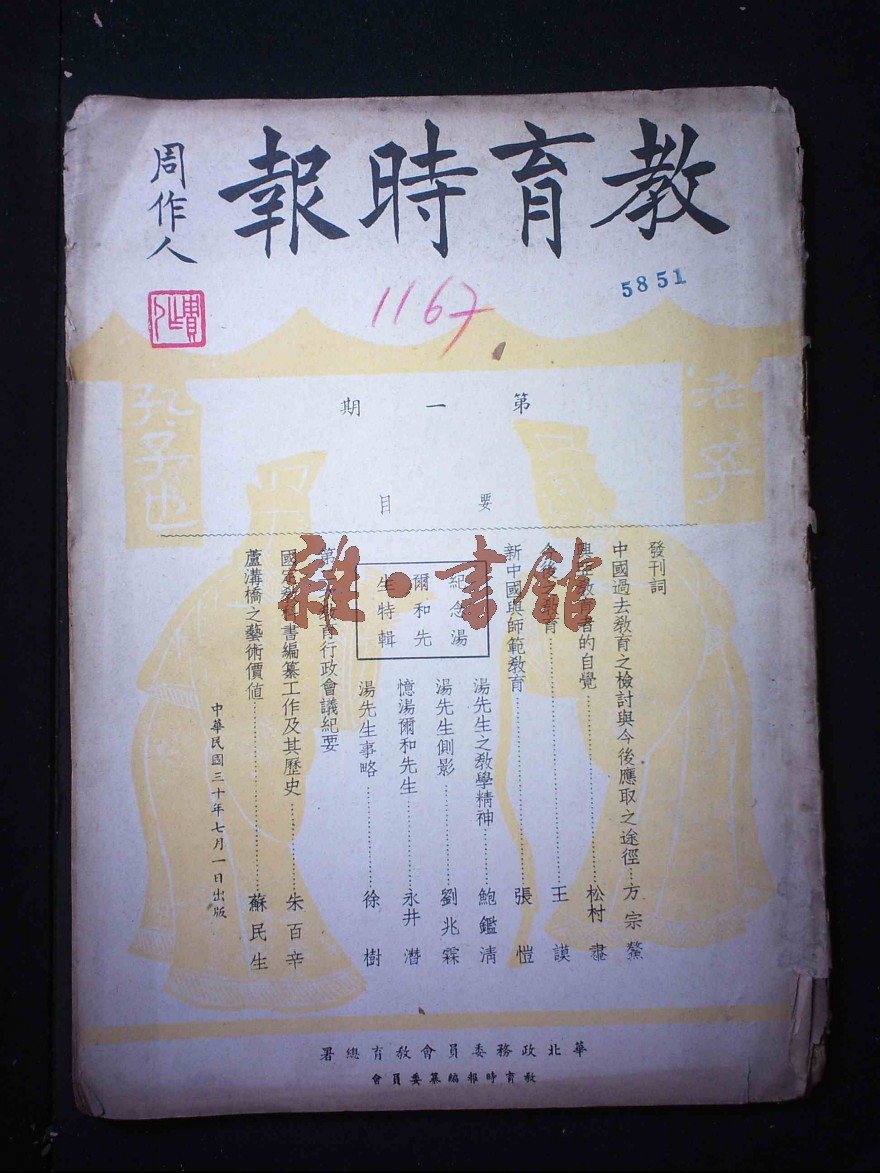 教育時報
周作人
5851
1167
老子
孔子也
第一期
要目
發刊詞
中國過去教育之檢討與今後應取之途徑…方宗鰲
教育者的自覺……松村
教育……王謨
新中國與師範教育……張愷
紀念湯
爾和先
生特輯
湯先生之教學精神……鮑鑑清
湯先生側影……劉兆霖
憶湯爾和先生……永井潛
湯先生事略……徐樹
教育行政會議紀要
國定教科書編纂工作及其歷史……朱百辛
蘆溝橋之藝術價值……蘇民生
中華民國三十年七月一日出版
華北政務委員會教育總署
教育時報編纂委員會
雜·書館